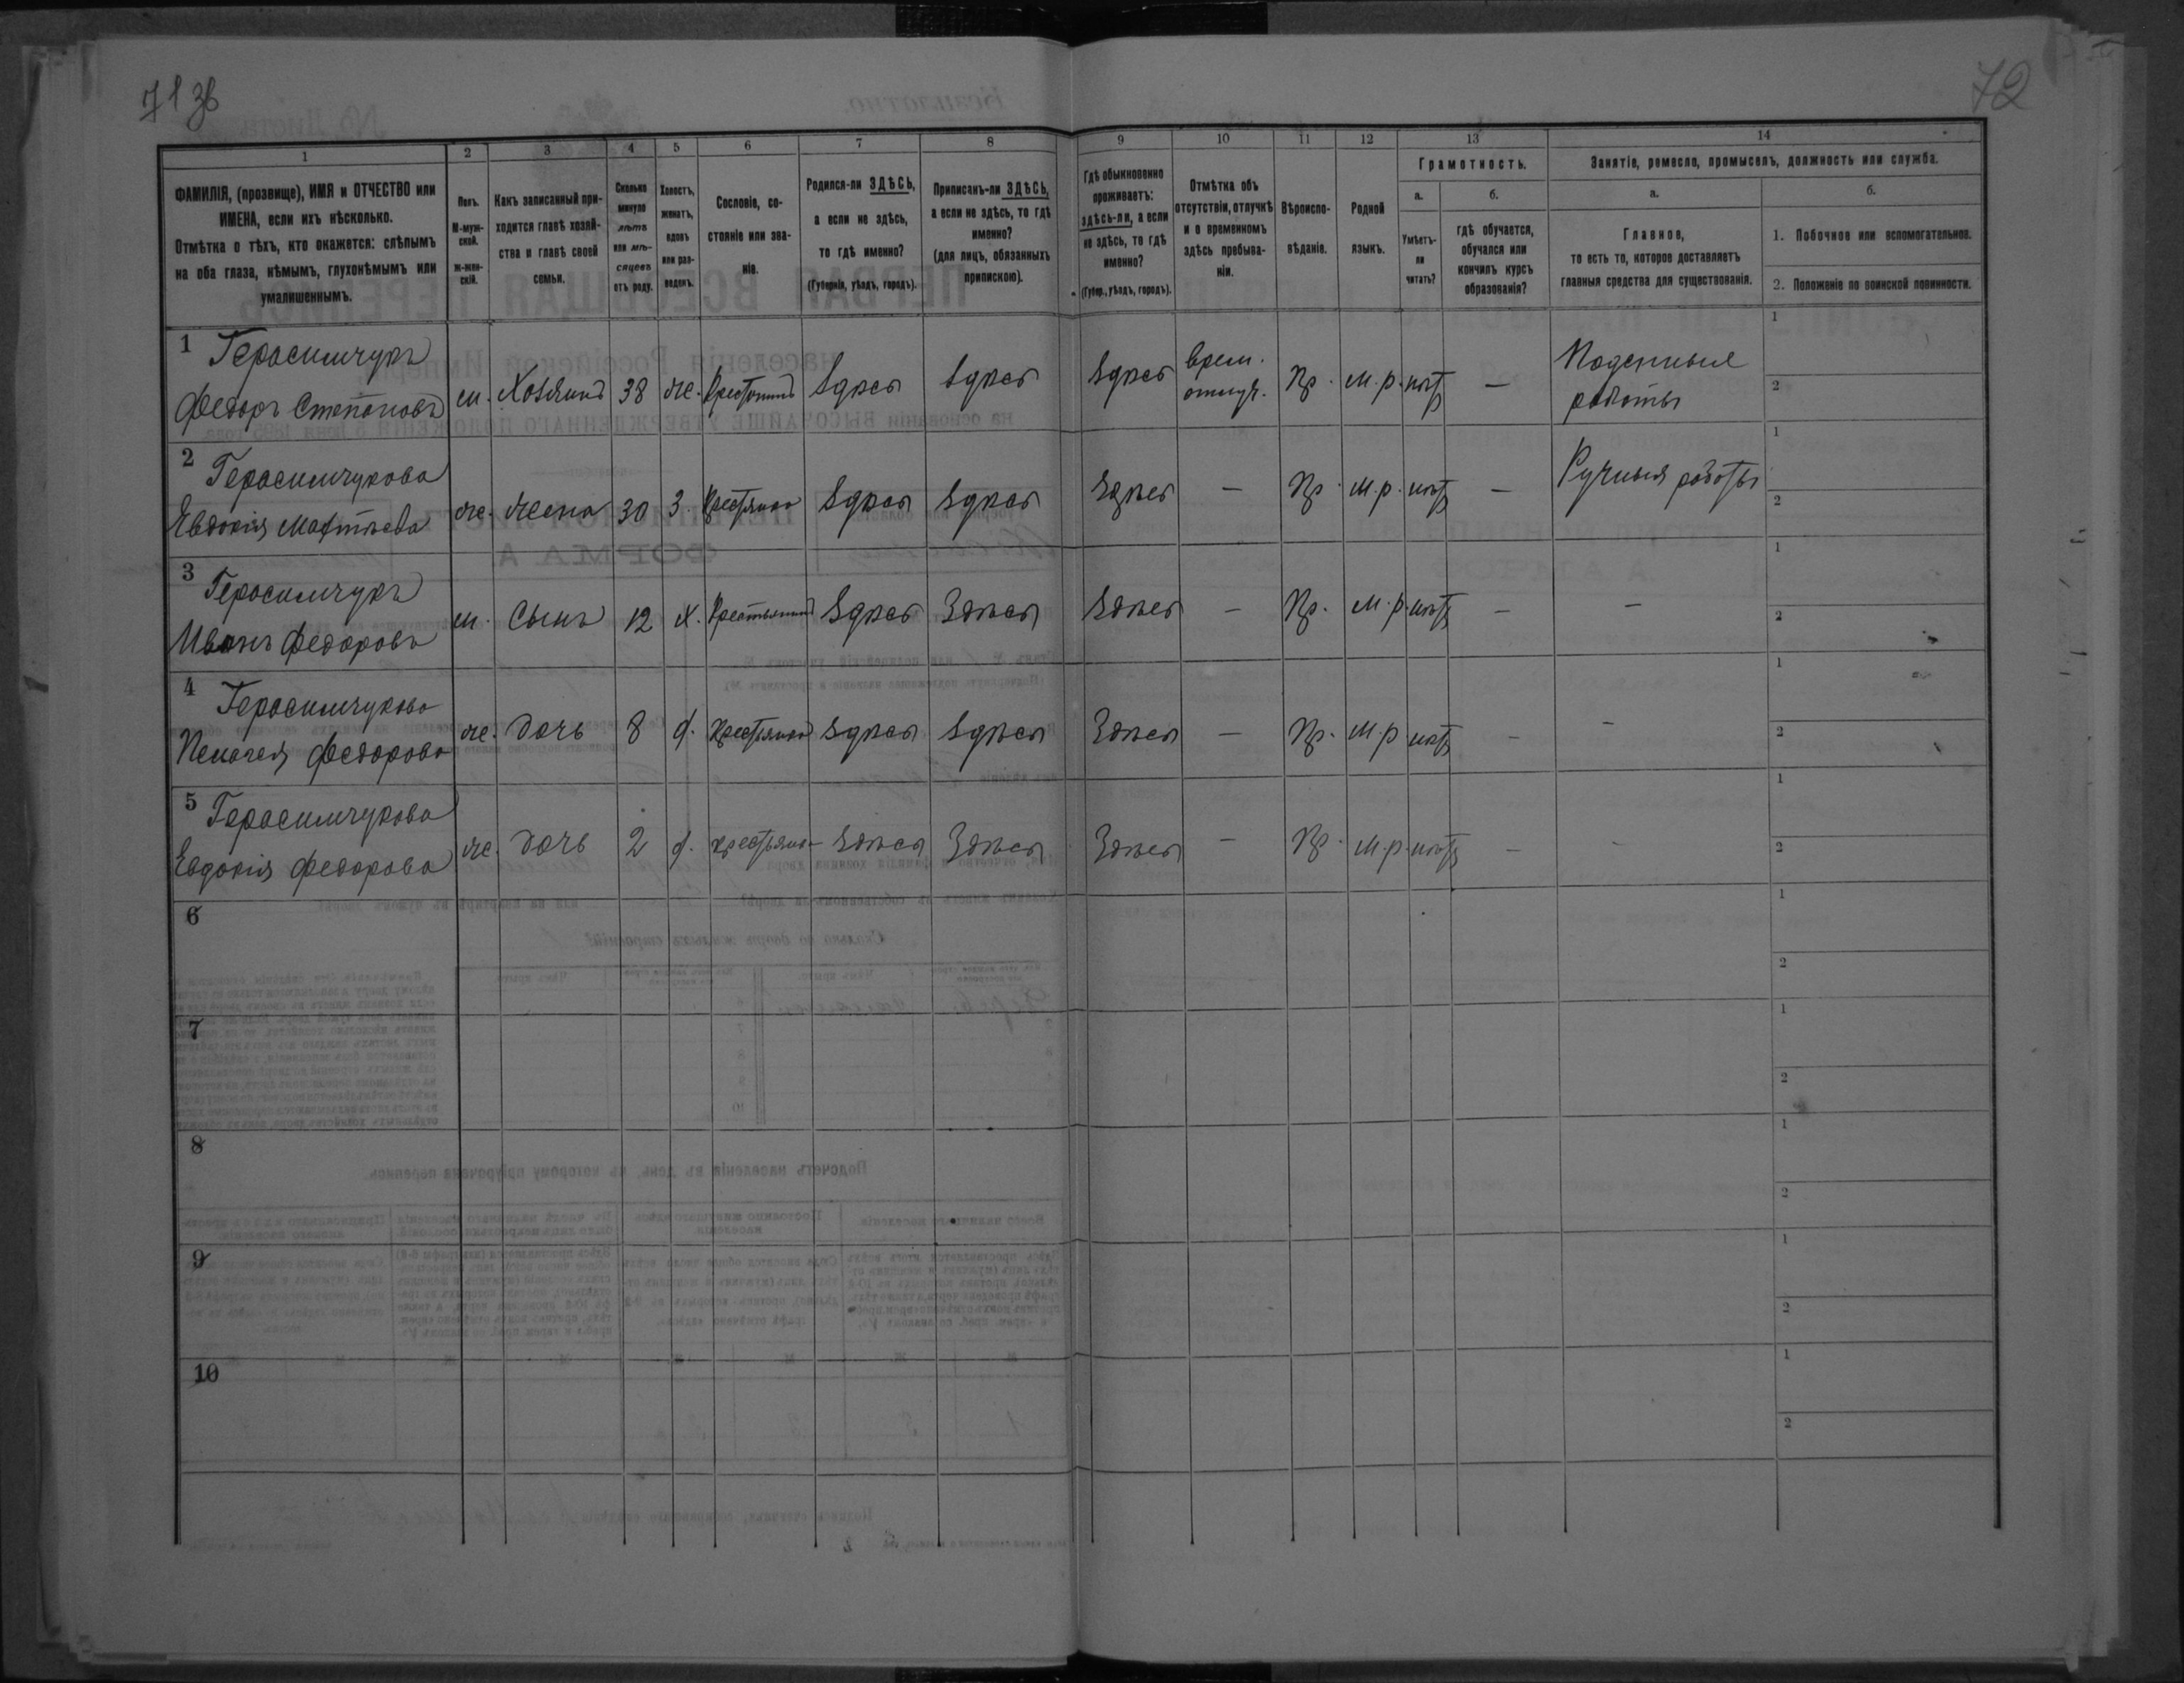 71 зв
72
1 2 3 4 5 6 7 8 9 10 11 12 13 14
ФАМИЛІЯ, (прозвище), ИМЯ и ОТЧЕСТВО или ИМЕНА, если ихъ нѣсколько.
Отмѣтка о тѣхъ, кто окажется: слѣпымъ на оба глаза, нѣмымъ, глухонѣмымъ или умалишеннымъ.
Полъ. М-мужской. ж-женскій.
Какъ записанный приходится главѣ хозяйства и главѣ своей семьи.
Сколько минуло лѣтъ или мѣсяцевъ отъ роду.
Холостъ, женатъ, вдовъ или разведенъ.
Сословіе, состояніе или званіе.
Родился-ли ЗДѢСЬ, а если не здѣсь, то гдѣ именно? (Губернія, уѣздъ, городъ).
Приписанъ-ли ЗДѢСЬ, а если не здѣсь, то гдѣ именно? (для лицъ, обязанныхъ припискою).
Гдѣ обыкновенно проживаетъ: здѣсь-ли, а если не здѣсь, то гдѣ именно? (Губер., уѣздъ, городъ).
Отмѣтка объ отсутствіи, отлучкѣ и о временномъ здѣсь пребываніи.
Вѣроисповѣданіе.
Родной языкъ.
Грамотность.
а. Умѣетъ-ли читать?
б. гдѣ обучается, обучался или кончилъ курсъ образованія?
Занятіе, ремесло, промыселъ, должность или служба.
а. Главное, то есть то, которое доставляетъ главныя средства для существованія.
б.
1. Побочное или вспомогательное.
2. Положеніе по воинской повинности.
1 Герасимчукъ Федоръ Степановъ м. Хозяинъ 38 ж. Крестьянинъ Здѣсь Здѣсь Здѣсь врем. отлуч. Пр. м.р. нѣтъ — Поденныя работы 1 2
2 Герасимчукова Евдокія Матѳѣева ж. жена 30 з. Крестьянка Здѣсь Здѣсь Здѣсь — Пр. м.р. нѣтъ — Ручныя работы 1 2
3 Герасимчукъ Иванъ Федоровъ м. Сынъ 12 х. Крестьянинъ Здѣсь Здѣсь Здѣсь — Пр. м.р. нѣтъ — — 1 2
4 Герасимчукова Пелагея Федорова ж. дочь 8 д. Крестьянка Здѣсь Здѣсь Здѣсь — Пр. м.р нѣтъ — — 1 2
5 Герасимчукова Евдокія Федорова ж. дочь 2 д. крестьянка Здѣсь Здѣсь Здѣсь — Пр. м.р. нѣтъ — - 1 2
6 1 2
7 1 2
8 1 2
9 1 2
10 1 2